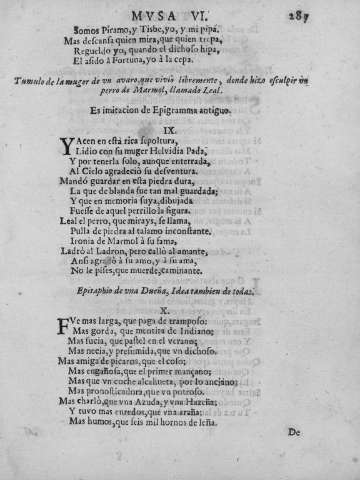 MVSA VI. 287
Somos Piramo, y Tisbe, yo, y mi pipa.
Mas descansa quien mira, que quien trepa,
Regueldo yo, quando el dichoso hipa,
El asido à Fortuna, yo à la cepa.
Tumulo de la muger de vn avaro, que viviò libremente, donde hizo esculpir vn
perro de Marmol, llamado Leal.
Es imitacion de Epigramma antiguo.
IX.
YAcen en està rica sepoltura,
Lidio con su muger Helvidia Pada,
Y por tenerla solo, aunque enterrada,
Al Cielo agradeciò su desventura.
Mandò guardar en esta piedra dura,
La que de blanda fue tan mal guardada;
Y que en memoria suya, dibujada
Fuesse de aquel perrillo la figura.
Leal el perro, que mirays, se llama,
Pulla de piedra al talamo inconstante.
Ironia de Marmol à su fama,
Ladrò al Ladron, pero callò al amante,
Ansi agradò à su amo, y à su ama,
No le pises, que muerde, caminante.
Epitaphio de vna Dueña, Idea tambien de todas.
X.
FVe mas larga, que paga de tramposo;
Mas gorda, que mentira de Indiano;
Mas sucia, que pastel en el verano;
Mas necia, y presumida, que vn dichoso.
Mas amiga de picaros, que el coso;
Mas engañosa, que el primer mançano;
Mas que vn coche alcahueta, por lo anciano;
Mas pronosticadora, que vn potroso.
Mas charlò, que vna Azuda, y vna Hazeña;
Y tuvo mas enredos, que vna araña;
Mas humos, que seis mil hornos de leña.
De